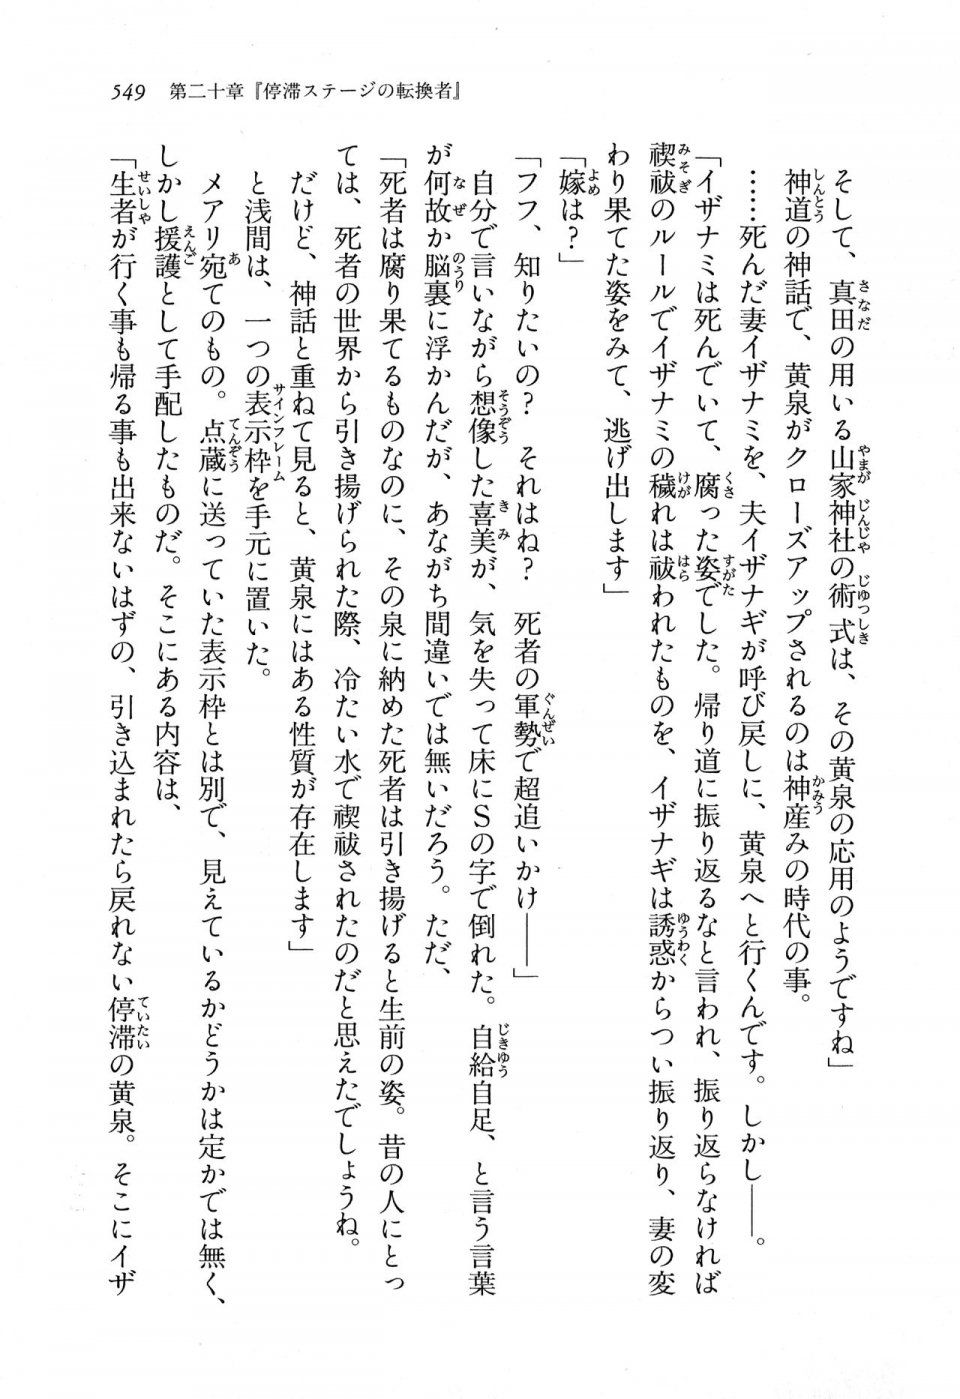 549 第二十章『停滞ステージの転換者』
そして、真田の用いる山家神社の術式は、その黄泉の応用のようですね」
神道の神話で、黄泉がクローズアップされるのは神産みの時代の事。
……死んだ妻イザナミを、夫イザナギが呼び戻しに、黄泉へと行くんです。しかし――。
「イザナミは死んでいて、腐った姿でした。帰り道に振り返るなと言われ、振り返らなければ
禊祓のルールでイザナミの穢れは祓われたものを、イザナギは誘惑からつい振り返り、妻の変
わり果てた姿をみて、逃げ出します」
「嫁は？」
「フフ、知りたいの？　それはね？　死者の軍勢で超追いかけ――」
自分で言いながら想像した喜美が、気を失って床にＳの字で倒れた。自給自足、と言う言葉
が何故か脳裏に浮かんだが、あながち間違いでは無いだろう。ただ、
「死者は腐り果てるものなのに、その泉に納めた死者は引き揚げると生前の姿。昔の人にとっ
ては、死者の世界から引き揚げられた際、冷たい水で禊祓されたのだと思えたでしょうね。
だけど、神話と重ねて見ると、黄泉にはある性質が存在します」
と浅間は、一つの表示枠を手元に置いた。
メアリ宛てのもの。点蔵に送っていた表示枠とは別で、見えているかどうかは定かでは無く、
しかし援護として手配したものだ。そこにある内容は、
「生者が行く事も帰る事も出来ないはずの、引き込まれたら戻れない停滞の黄泉。そこにイザ